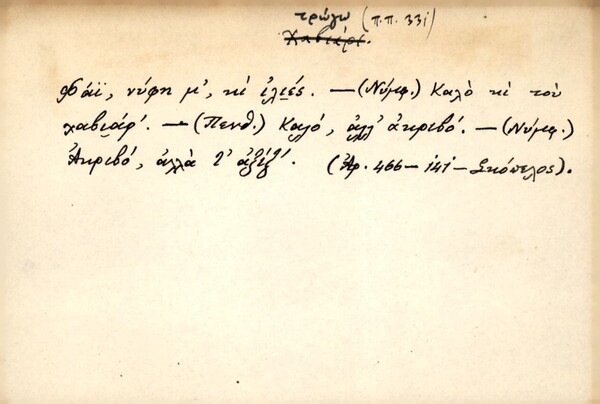 τρώγω (π.π. 331)
Χαβιάρι.
Φάϊ, νύφη μ', κὶ ἐλιές. — (Νύμφ.) Καλὸ κὶ τοὺ
χαβιάρ'. — (Πενθ.) Καλό, ἀλλ' ἀκριβό. — (Νύμφ.)
Ἀκριβό, ἀλλὰ τ' ἀξίζ'. (Ἀρ. 466 — 141 — Σκόπελος).